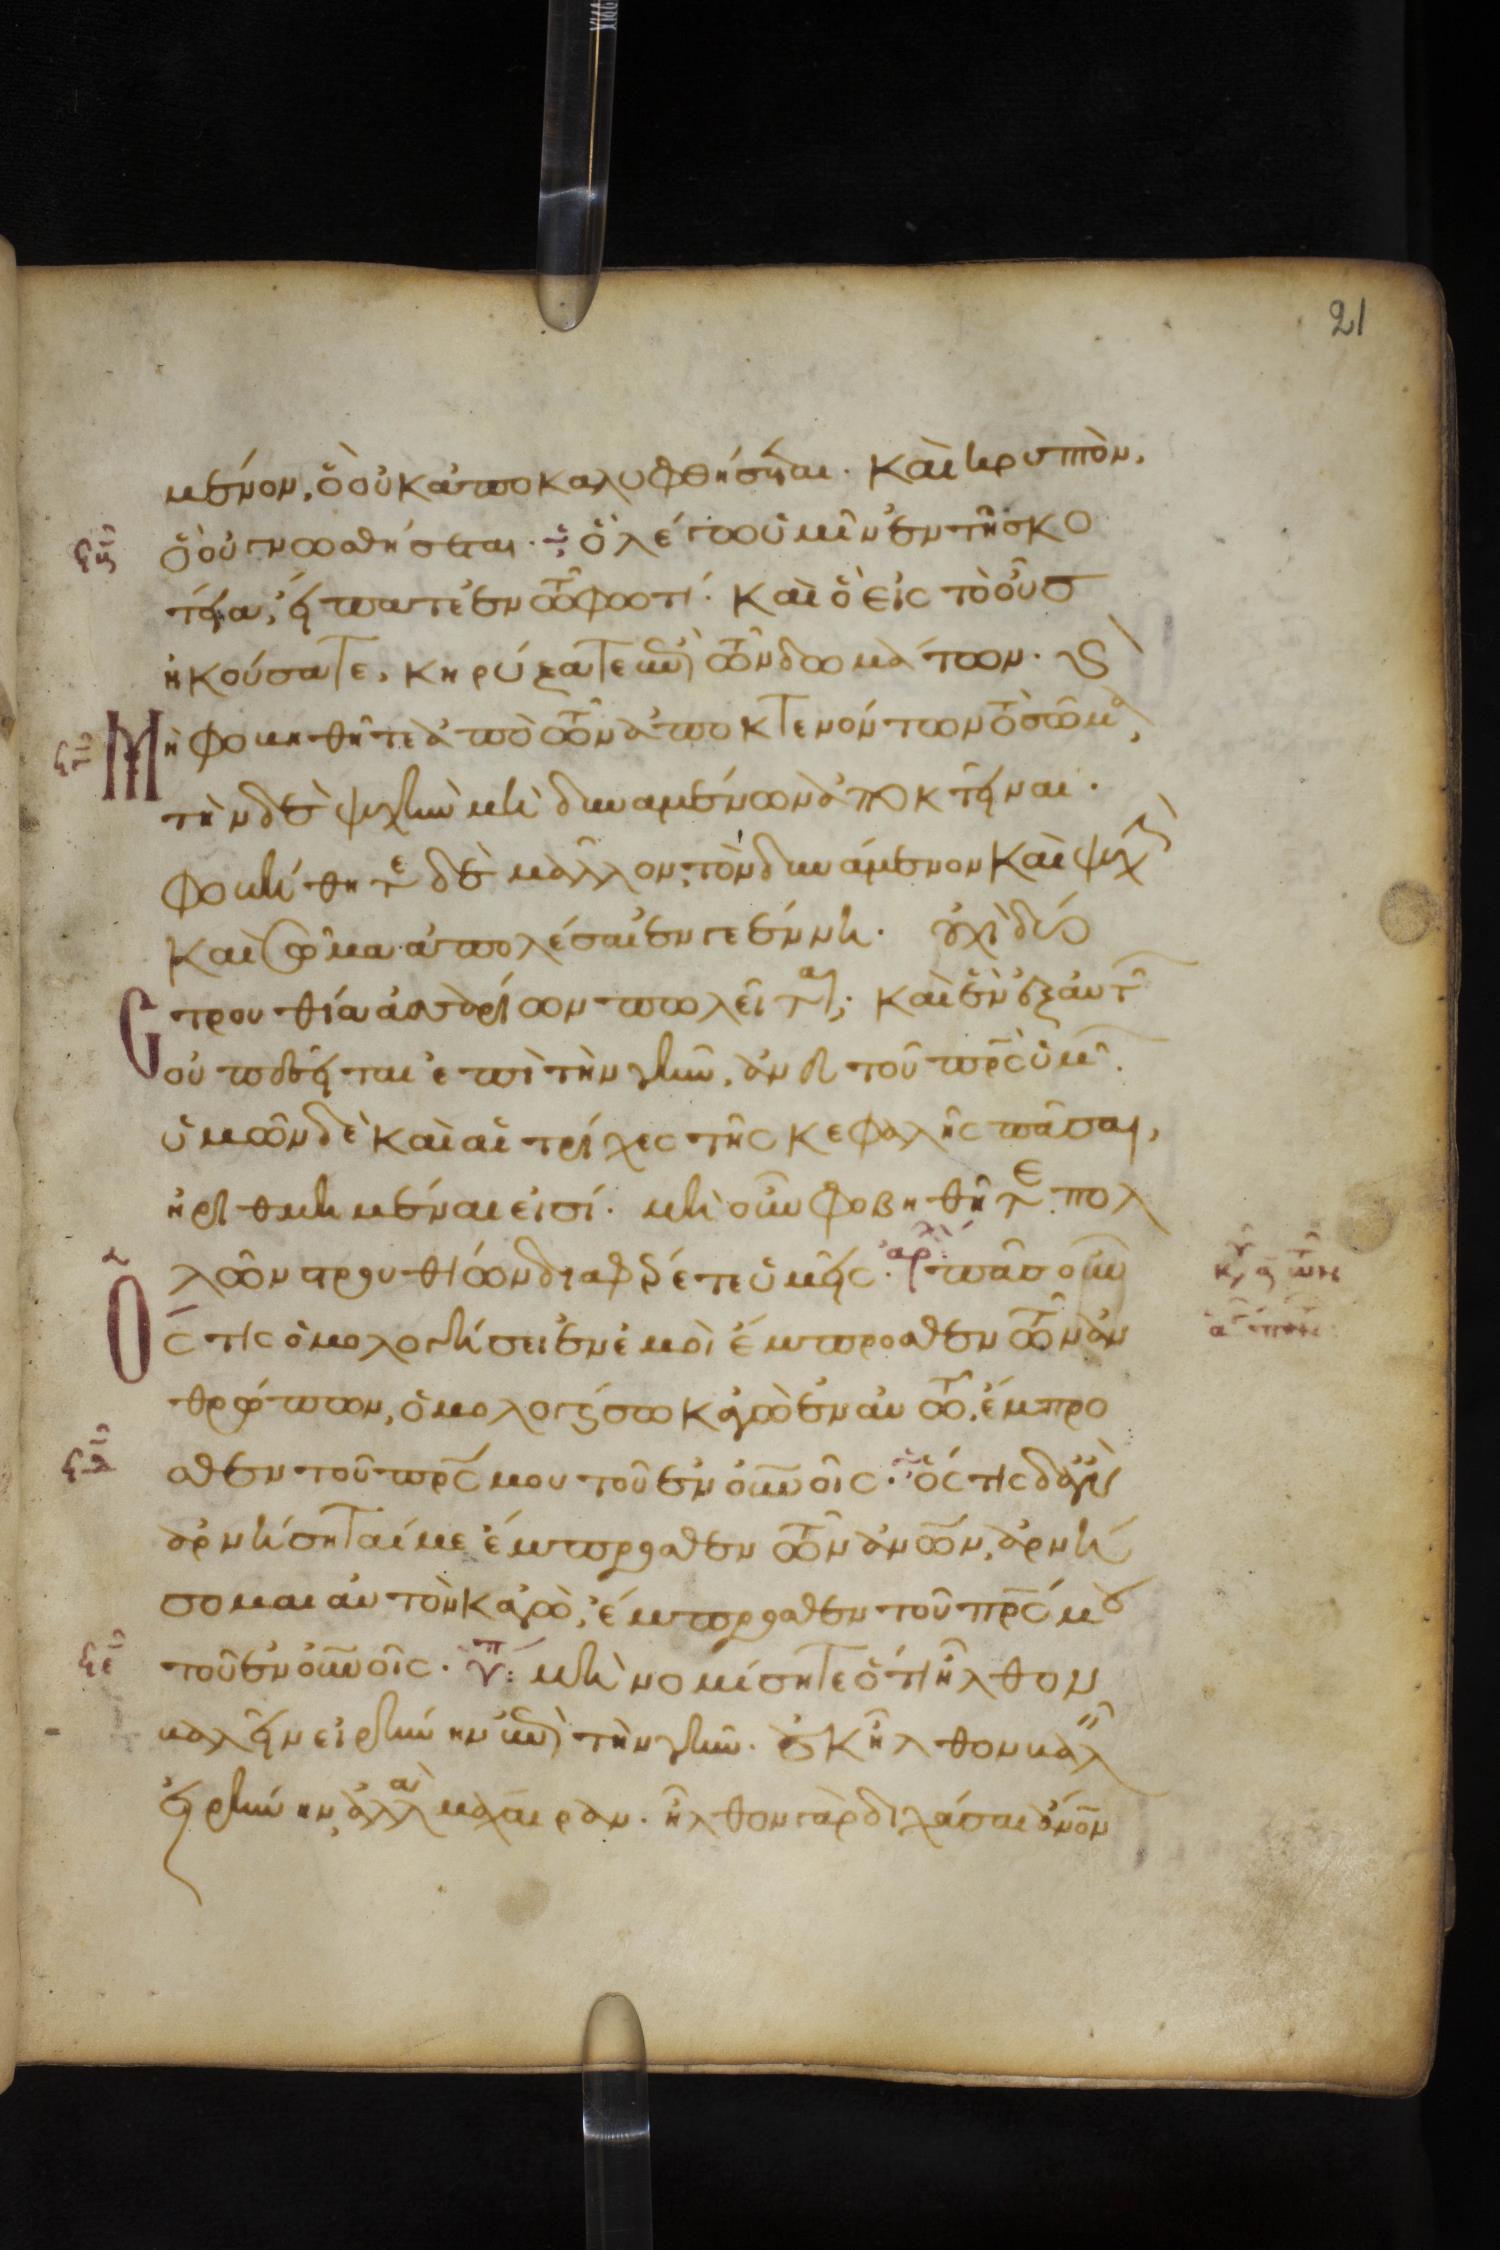 21
μένον, ὃ οὐκ ἀποκαλυφθήσεται. καὶ κρυπτὸν,
ὃ οὐ γνωσθήσεται. ὃ λέγω ὑμῖν ἐν τῇ σκο
τεία, εἴπατε ἐν τῶ φωτί. καὶ ὃ εἰς τὸ οὖσ
ἠκούσατε, κηρύξατε ἐπὶ τῶν δωμάτων. καὶ
Μὴ φοβηθῆτε ἀπὸ τῶν ἀποκτενόντων τὸ σῶμα,
τὴν δὲ ψυχὴν μὴ δυναμένων ἀποκτεῖναι.
φοβήθητε δὲ μᾶλλον, τὸν δυνάμενον καὶ ψυχὴν
καὶ σῶμα ἀπολέσαι ἐν γεέννη. οὐχὶ δύο
Στρουθία ἀσσαρίων πωλεῖται; καὶ ἓν ἐξ αὐτῶν
οὐ πεσεῖται ἐπὶ τὴν γῆν, ἄνευ τοῦ πρς ὑμῶν.
ὑμῶν δὲ καὶ αἱ τρίχες τῆς κεφαλῆς πᾶσαι,
ἠριθμημέναι εἰσί. μὴ οὖν φοβηθῆτε. πολ
λῶν στρουθίων διαφέρετε ὑμεῖς. αρχ πᾶς οὖν
Ὅς τις ὁμολογήσει ἐν ἐμοὶ ἔμπροσθεν τῶν ἀν
θρώπων, ὁμολογήσω κἀγὼ ἐν αὐτῶ, ἔμπρο
σθεν τοῦ πρς μου τοῦ ἐν οὐνοῖς. ὅς τις δ' ἂν
ἀρνήσηταί με ἔμπροσθεν τῶν ἀνων, ἀρνή
σομαι αὐτὸν κἀγὼ, ἔμπροσθεν τοῦ πρς μου
τοῦ ἐν οὐνοῖς. υπ μὴ νομίσητε ὅτι ἦλθον
βαλεῖν εἰρήνην ἐπὶ τὴν γῆν. οὐκ ἦλθον βαλεῖν
εἰρήνην, ἀλλὰ μάχαιραν. ἦλθον γὰρ διχάσαι ἄνον